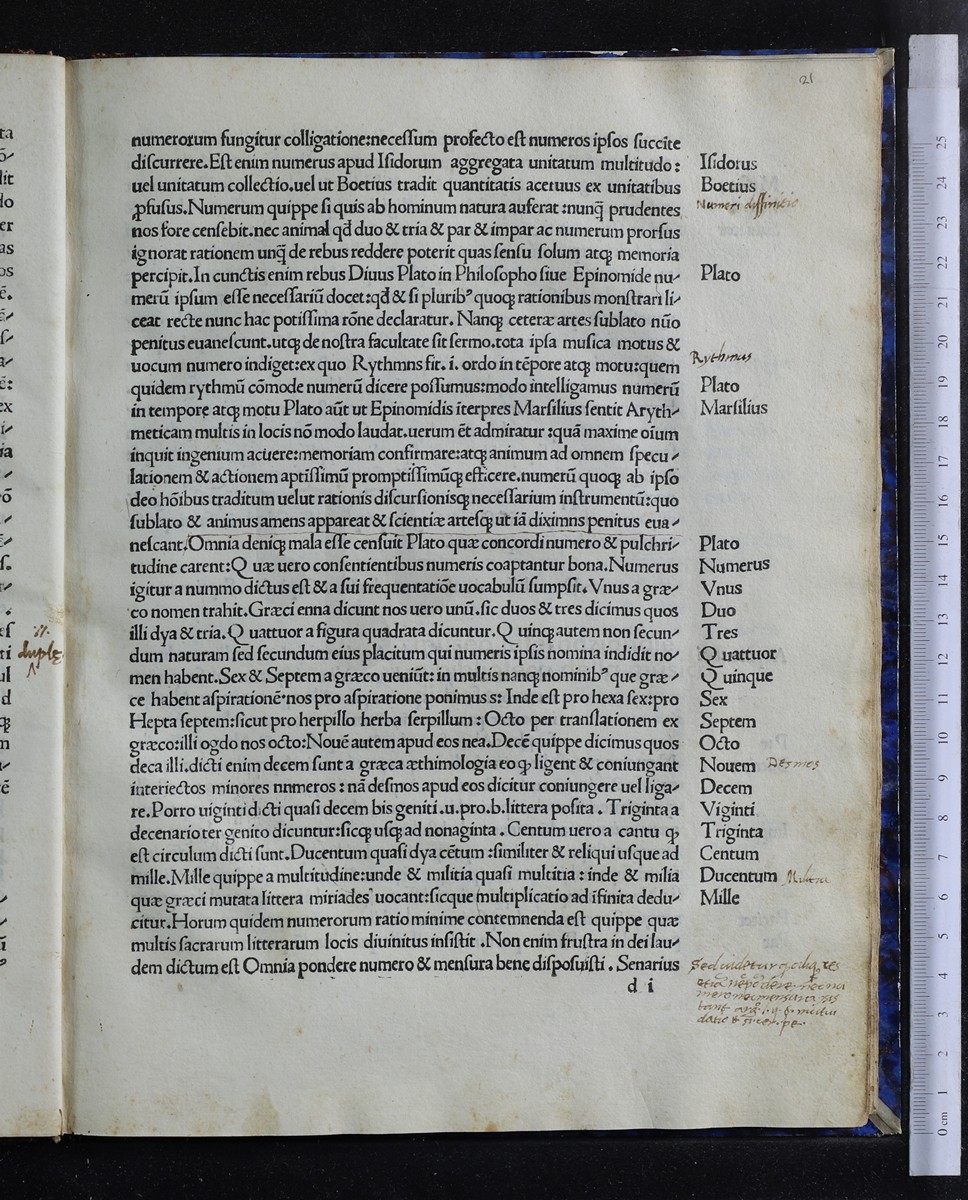 21
numerorum fungitur colligatione:neceſſum profecto eſt numeros ipſos ſuccite
diſcurrere.Eſt enim numerus apud Iſidorum aggregata unitatum multitudo: Iſidorus
uel unitatum collectio.uel ut Boetius tradit quantitatis aceruus ex unitatibus Boetius
ꝓfuſus.Numerum quippe ſi quis ab hominum natura auferat:nunq̄ prudentes Numeri diffinitio
nos fore cenſebit.nec animal qđ duo & tria & par & impar ac numerum prorſus
ignorat rationem unq̄ de rebus reddere poterit quas ſenſu ſolum atꝗ memoria
percipit.In cunctis enim rebus Diuus Plato in Philoſopho ſiue Epinomide nu⸗ Plato
merū ipſum eſſe neceſſariū docet:qđ & ſi pluribꝰ quoꝗ rationibus monſtrari li⸗
ceat recte nunc hac potiſſima rōne declaratur. Nanꝗ ceteræ artes ſublato nūo
penitus euaneſcunt.utꝗ de noſtra facultate ſit ſermo.tota ipſa muſica motus &
uocum numero indiget:ex quo Rythmns fit. i. ordo in tēpore atꝗ motu:quem Rythmus
quidem rythmū cōmode numerū dicere poſſumus:modo intelligamus numerū Plato
in tempore atꝗ motu Plato aūt ut Epinomidis īterpres Marſilius ſentit Aryth⸗ Marſilius
meticam multis in locis nō modo laudat.uerum ēt admiratur :quā maxime oīum
inquit ingenium acuere:memoriam confirmare:atꝗ animum ad omnem ſpecu⸗
lationem & actionem aptiſſimū promptiſſimūꝗ efficere.numerū quoꝗ ab ipſo
deo hōibus traditum uelut rationis diſcurſionisꝗ neceſſarium inſtrumentū:quo
ſublato & animus amens appareat & ſcientiæ arteſꝗ ut iā diximns penitus eua⸗
neſcant.Omnia deniꝗ mala eſſe cenſuit Plato quæ concordi numero & pulchri⸗ Plato
tudine carent:Quæ uero conſentientibus numeris coaptantur bona.Numerus Numerus
igitur a nummo dictus eſt & a ſui frequentatiōe uocabulū ſumpſit.Vnus a græ⸗ Vnus
co nomen trahit.Græci enna dicunt nos uero unū.ſic duos & tres dicimus quos Duo
illi dya & tria.Quattuor a figura quadrata dicuntur.Quinꝗ autem non ſecun⸗ Tres
dum naturam ſed ſecundum eius placitum qui numeris ipſis nomina indidit no⸗ Quattuor
men habent.Sex & Septem a græco ueniūt: in multis nanꝗ nominibꝰ que græ⸗ Quinque
ce habent aſpirationē:nos pro aſpiratione ponimus s: Inde eſt pro hexa ſex:pro Sex
Hepta ſeptem:ſicut pro herpillo herba ſerpillum : Octo per tranſlationem ex Septem
græco:illi ogdo nos octo:Nouē autem apud eos nea.Decē quippe dicimus quos Octo
deca illi.dicti enim decem ſunt a græca æthimologia eo ꝙ ligent & coniungant Nouem Desmos
interiectos minores nnmeros : nā deſmos apud eos dicitur coniungere uel liga⸗ Decem
re.Porro uiginti dicti quaſi decem bis geniti.u.pro.b.littera poſita . Triginta a Viginti
decenario ter genito dicuntur:ſicꝗ uſꝗ ad nonaginta . Centum uero a cantu ꝙ Triginta
eſt circulum dicti ſunt.Ducentum quaſi dya cētum :ſimiliter & reliqui uſque ad Centum
mille.Mille quippe a multitudine:unde & militia quaſi multitia : inde & milia Ducentum Militia
quæ græci mutata littera miriades uocant:ſicque multiplicatio ad īfinita dedu⸗ Mille
citur.Horum quidem numerorum ratio minime contemnenda eſt quippe quæ
multis ſacrarum litterarum locis diuinitus inſiſtit .Non enim fruſtra in dei lau⸗
dem dictum eſt Omnia pondere numero & menſura bene diſpoſuiſti . Senarius
d i